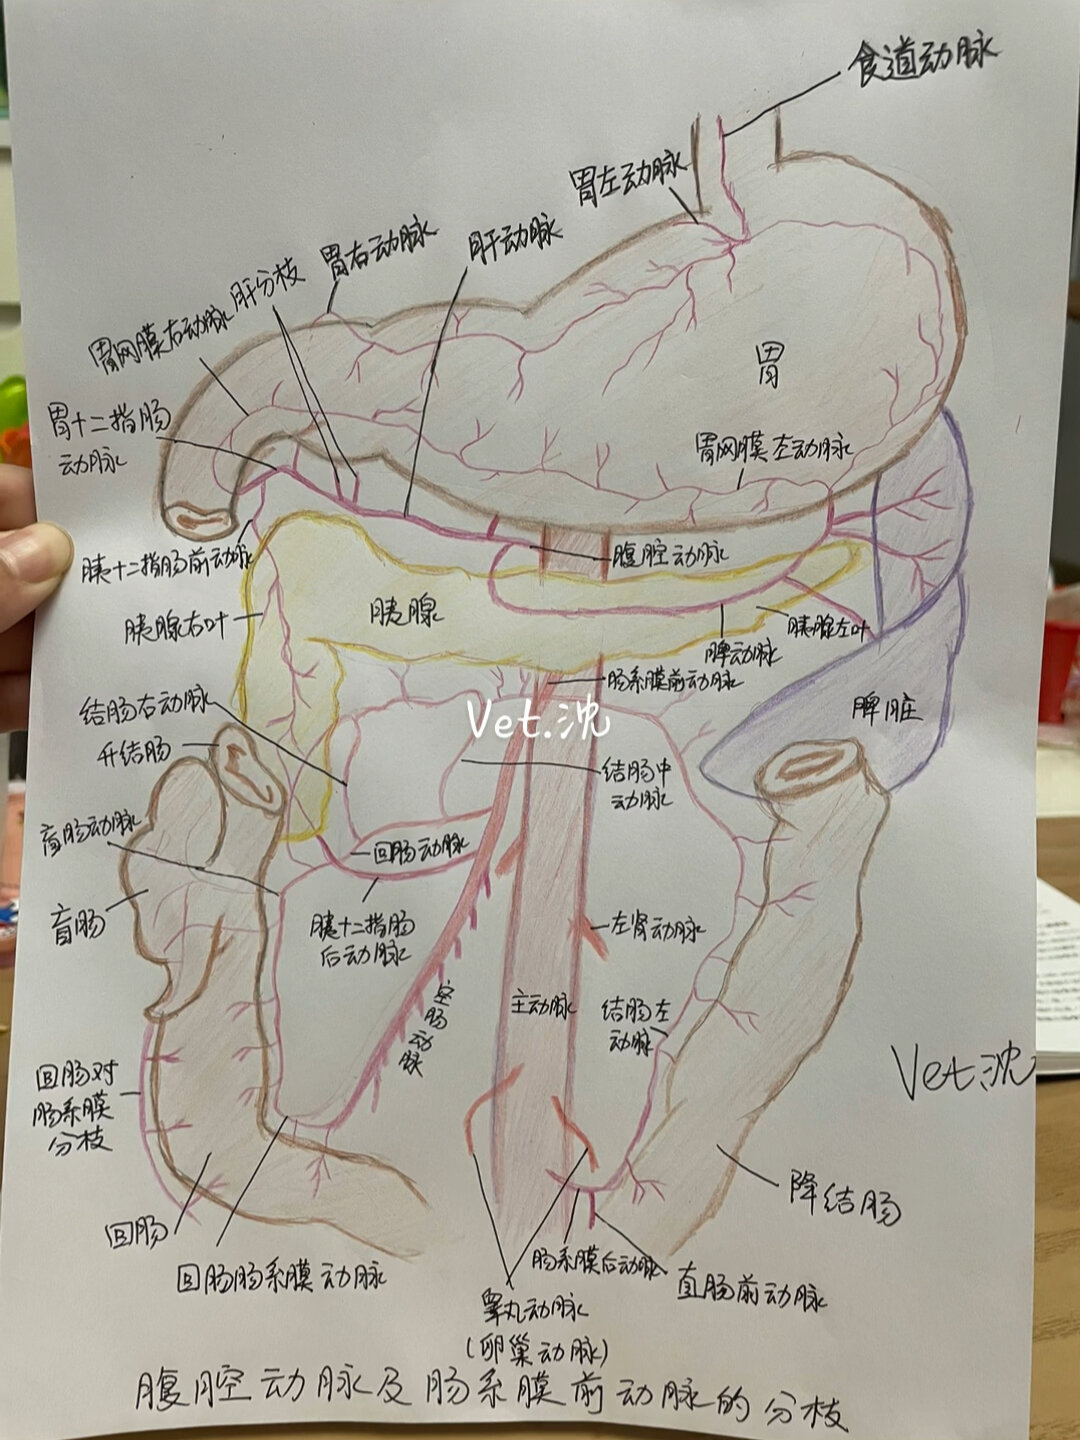 食道动脉
胃左动脉
胃右动脉
肝动脉
肝分枝
胃网膜右动脉
胃
胃十二指肠
动脉
胃网膜左动脉
腹腔动脉
胰十二指肠前动脉
胰腺
胰腺右叶
胰腺左叶
脾动脉
肠系膜前动脉
结肠右动脉
Vet.沈
脾脏
升结肠
结肠中
动脉
盲肠动脉
回肠动脉
盲肠
胰十二指肠
后动脉
左肾动脉
空肠动脉
主动脉
结肠左
动脉
Vet.沈
回肠对
肠系膜
分枝
降结肠
回肠
回肠肠系膜动脉
肠系膜后动脉
直肠前动脉
睾丸动脉
(卵巢动脉)
腹腔动脉及肠系膜前动脉的分枝